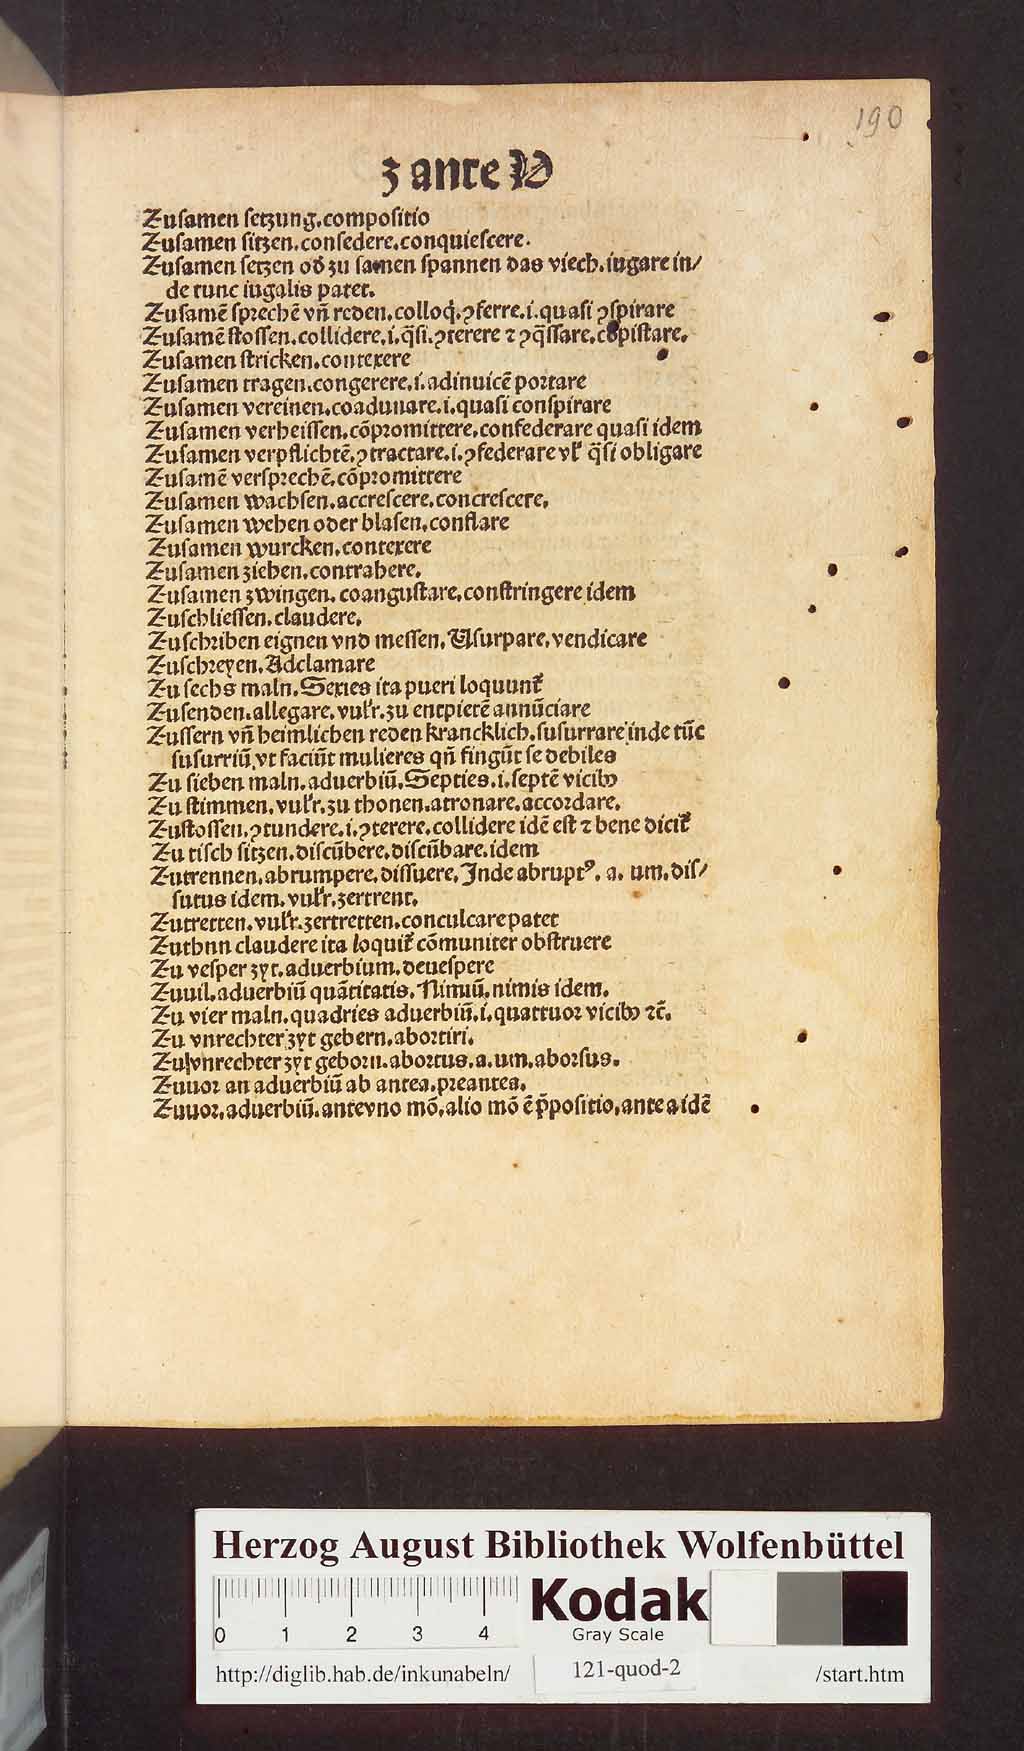 190
z ante V
Zuſamen ſetzung.compoſitio
Zuſamen ſitzen.conſedere.conquieſcere.
Zuſamen ſetzen od̕ zu ſamen ſpannen das viech.iugare in/
de tunc iugalis patet.
Zuſamē ſprechē vn̄ reden.colloq̇.ꝯferre.i.quaſi ꝯſpirare
Zuſamē ſtoſſen.collidere.i.q̄ſi.ꝯterere ⁊ ꝯq̄ſſare.copiſtare.
Zuſamen ſtricken.contexere
Zuſamen tragen.congerere.i.adinuicē portare
Zuſamen vereinen.coadunare.i.quaſi conſpirare
Zuſamen verheiſſen.cōpromittere.confederare quaſi idem
Zuſamen verpflichtē.ꝯtractare.i.ꝯfederare vl̕ q̄ſi obligare
Zuſamē verſprechē.cōpromittere
Zuſamen wachſen.accreſcere.concreſcere.
Zuſamen wehen oder blaſen.conflare
Zuſamen wurcken.contexere
Zuſamen ziehen.contrahere.
Zuſamen zwingen. coanguſtare.conſtringere idem
Zuſchlieſſen.claudere.
Zuſchriben eignen vnd meſſen.Uſurpare.vendicare
Zuſchreyen.Adclamare
Zu ſechs maln.Sexies ita pueri loquunt᷑
Zuſenden.allegare.vul̕r.zu entpietē annūciare
Zuſſern vn̄ heimlichen reden krancklich.ſuſurrare inde tūc
ſuſurriū.vt faciūt mulieres qn̄ fingūt ſe debiles
Zu ſieben maln.aduerbiū.Septies.i.ſeptē vicibꝰ
Zu ſtimmen.vul̕r.zu thonen.atronare.accordare.
Zuſtoſſen.ꝯtundere.i.ꝯterere.collidere idē eſt ⁊ bene dicit᷑
Zu tiſch ſitzen.diſcūbere.diſcūbare.idem
Zutrennen.abrumpere.diſſuere.Inde abruptꝰ. a. um.diſ/
ſutus idem.vul̕r.zertrent.
Zutretten.vul̕r.zertretten.conculcare patet
Zuthnn claudere ita loquit᷑ cōmuniter obſtruere
Zu veſper zyt.aduerbium.deueſpere
Zuuil.aduerbiū quātitatis.Nimiū.nimis idem.
Zu vier maln.quadries aduerbiū.i.quattuor vicibꝰ ⁊c̄.
Zu vnrechter zyt gebern.abortiri.
Zu vnrechter zyt geborn.abortus.a.um.aborſus.
Zuuor an aduerbiū ab antea.preantea.
Zuuor.aduerbiū.antevno mō.alio mō ē p̄poſitio.ante a idē
Herzog August Bibliothek Wolfenbüttel
0 1 2 3 4
Kodak
Gray Scale
http://diglib.hab.de/inkunabeln/ 121-quod-2 /start.htm